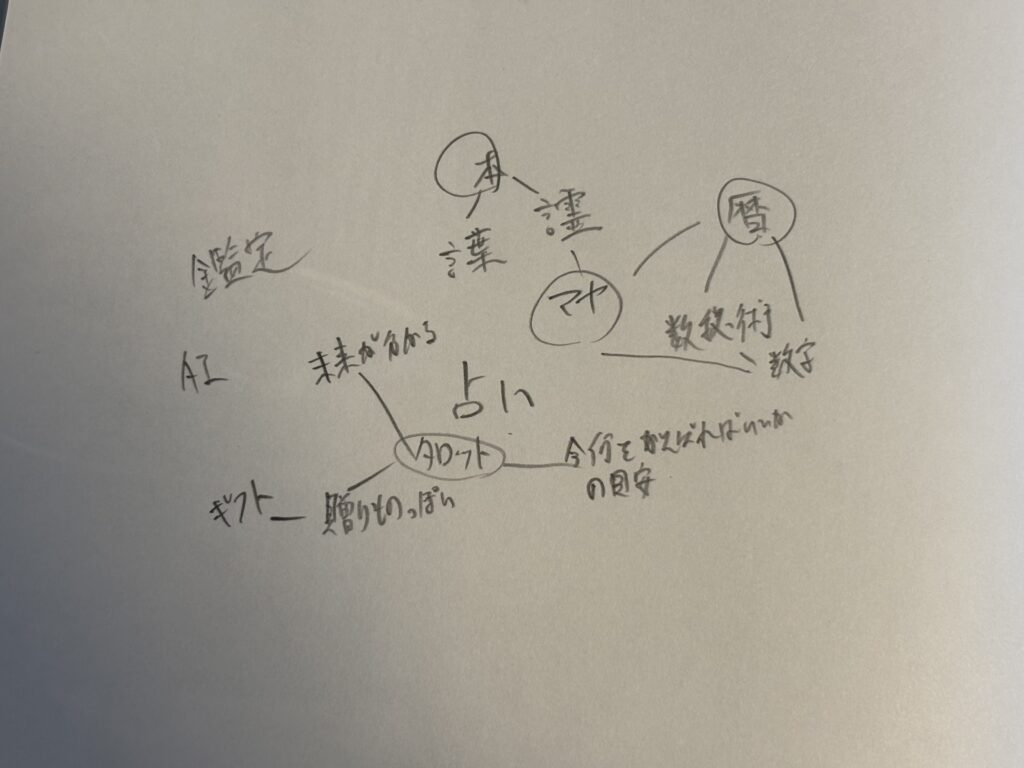 本
言霊
言葉
暦
マヤ
鑑定
数秘術
数字
未来が分かる
AI
占い
タロット
今何をがんばればいいか
の目安
ギフト
贈りものっぽい